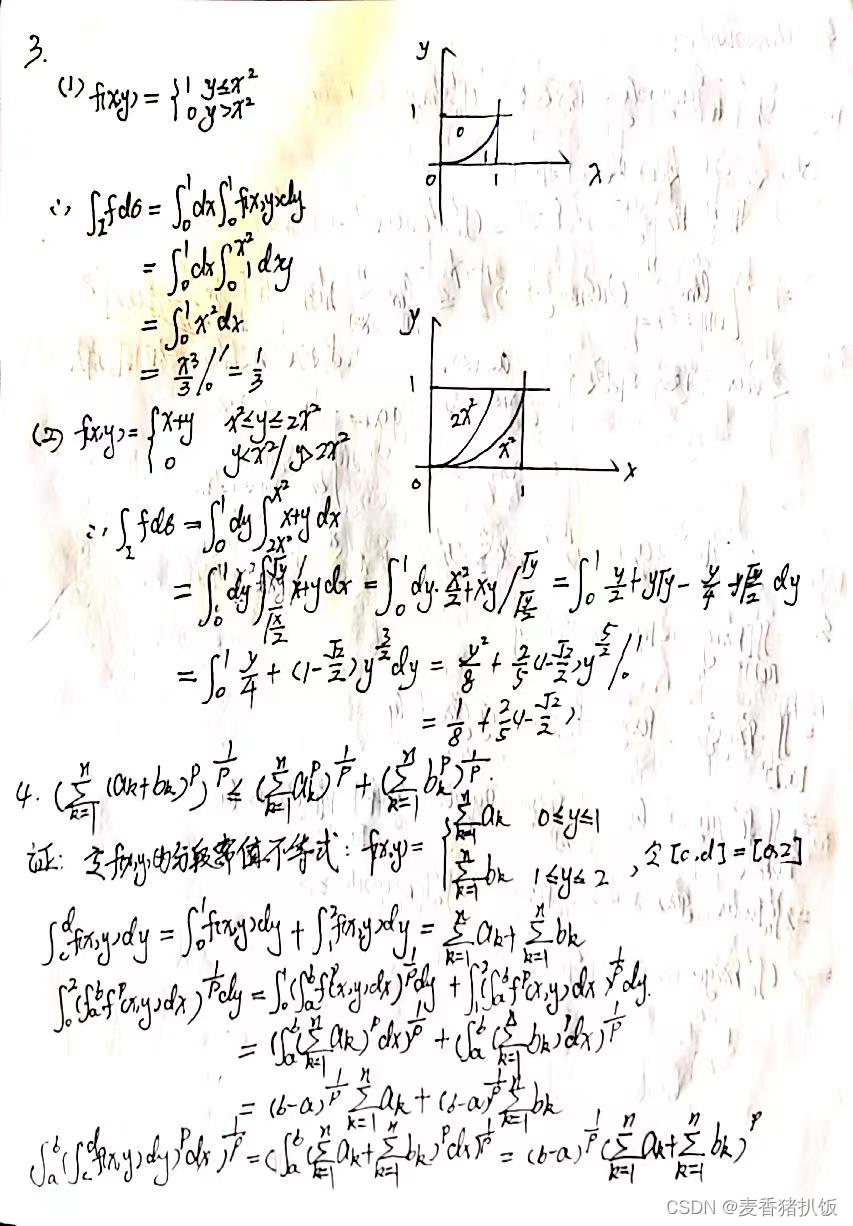 3.
(1) f(x,y) = { 1 y≤x²
0 y>x²
y
1
0
1
0 1 x
∴ ∫_I fdσ = ∫₀¹dx∫₀¹f(x,y)dy
= ∫₀¹dx∫₀^{x²} 1 dxy
= ∫₀¹x²dx
= x³/3 |₀¹ = 1/3
y
1
2x²
x²
0 1 x
(2) f(x,y) = { x+y x²≤y≤2x²
0 y<x² / y>2x²
∴ ∫_I fdσ = ∫₀¹dy∫_{2x²}^{x²} x+y dx
= ∫₀¹dy∫^{√y} x+y dx = ∫₀¹dy· x²/2+xy /_{√(y/2)}^{√y} = ∫₀¹ y/2+y√y - y/4 - y√(y/2) dy
= ∫₀¹ y/4 + (1-√2/2)y^{3/2}dy = y²/8 + 2/5(1-√2/2)y^{5/2}/₀¹
= 1/8 + 2/5(1-√2/2)
4. (∑_{k=1}^n (ak+bk)^p)^{1/p} ≤ (∑_{k=1}^n ak^p)^{1/p} + (∑_{k=1}^n bk^p)^{1/p}.
证: f(x,y)的分段常值不等式: f(x,y) = { ∑_{k=1}^n ak 0≤y≤1
∑_{k=1}^n bk 1≤y≤2 , 令[c,d]=[0,2]
∫_c^d f(x,y)dy = ∫₀¹f(x,y)dy + ∫₁²f(x,y)dy = ∑_{k=1}^n ak + ∑_{k=1}^n bk
∫₀²(∫_a^b f^p(x,y)dx)^{1/p}dy = ∫₀¹(∫_a^b f^p(x,y)dx)^{1/p}dy + ∫₁²(∫_a^b f^p(x,y)dx)^{1/p}dy.
= (∫_a^b(∑_{k=1}^n ak)^p dx)^{1/p} + (∫_a^b(∑_{k=1}^n bk)^p dx)^{1/p}
= (b-a)^{1/p}∑_{k=1}^n ak + (b-a)^{1/p}∑_{k=1}^n bk
(∫_a^b(∫_c^d f(x,y)dy)^p dx)^{1/p} = (∫_a^b(∑_{k=1}^n ak+∑_{k=1}^n bk)^p dx)^{1/p} = (b-a)^{1/p}(∑_{k=1}^n ak+∑_{k=1}^n bk)^p
CSDN @麦香猪扒饭